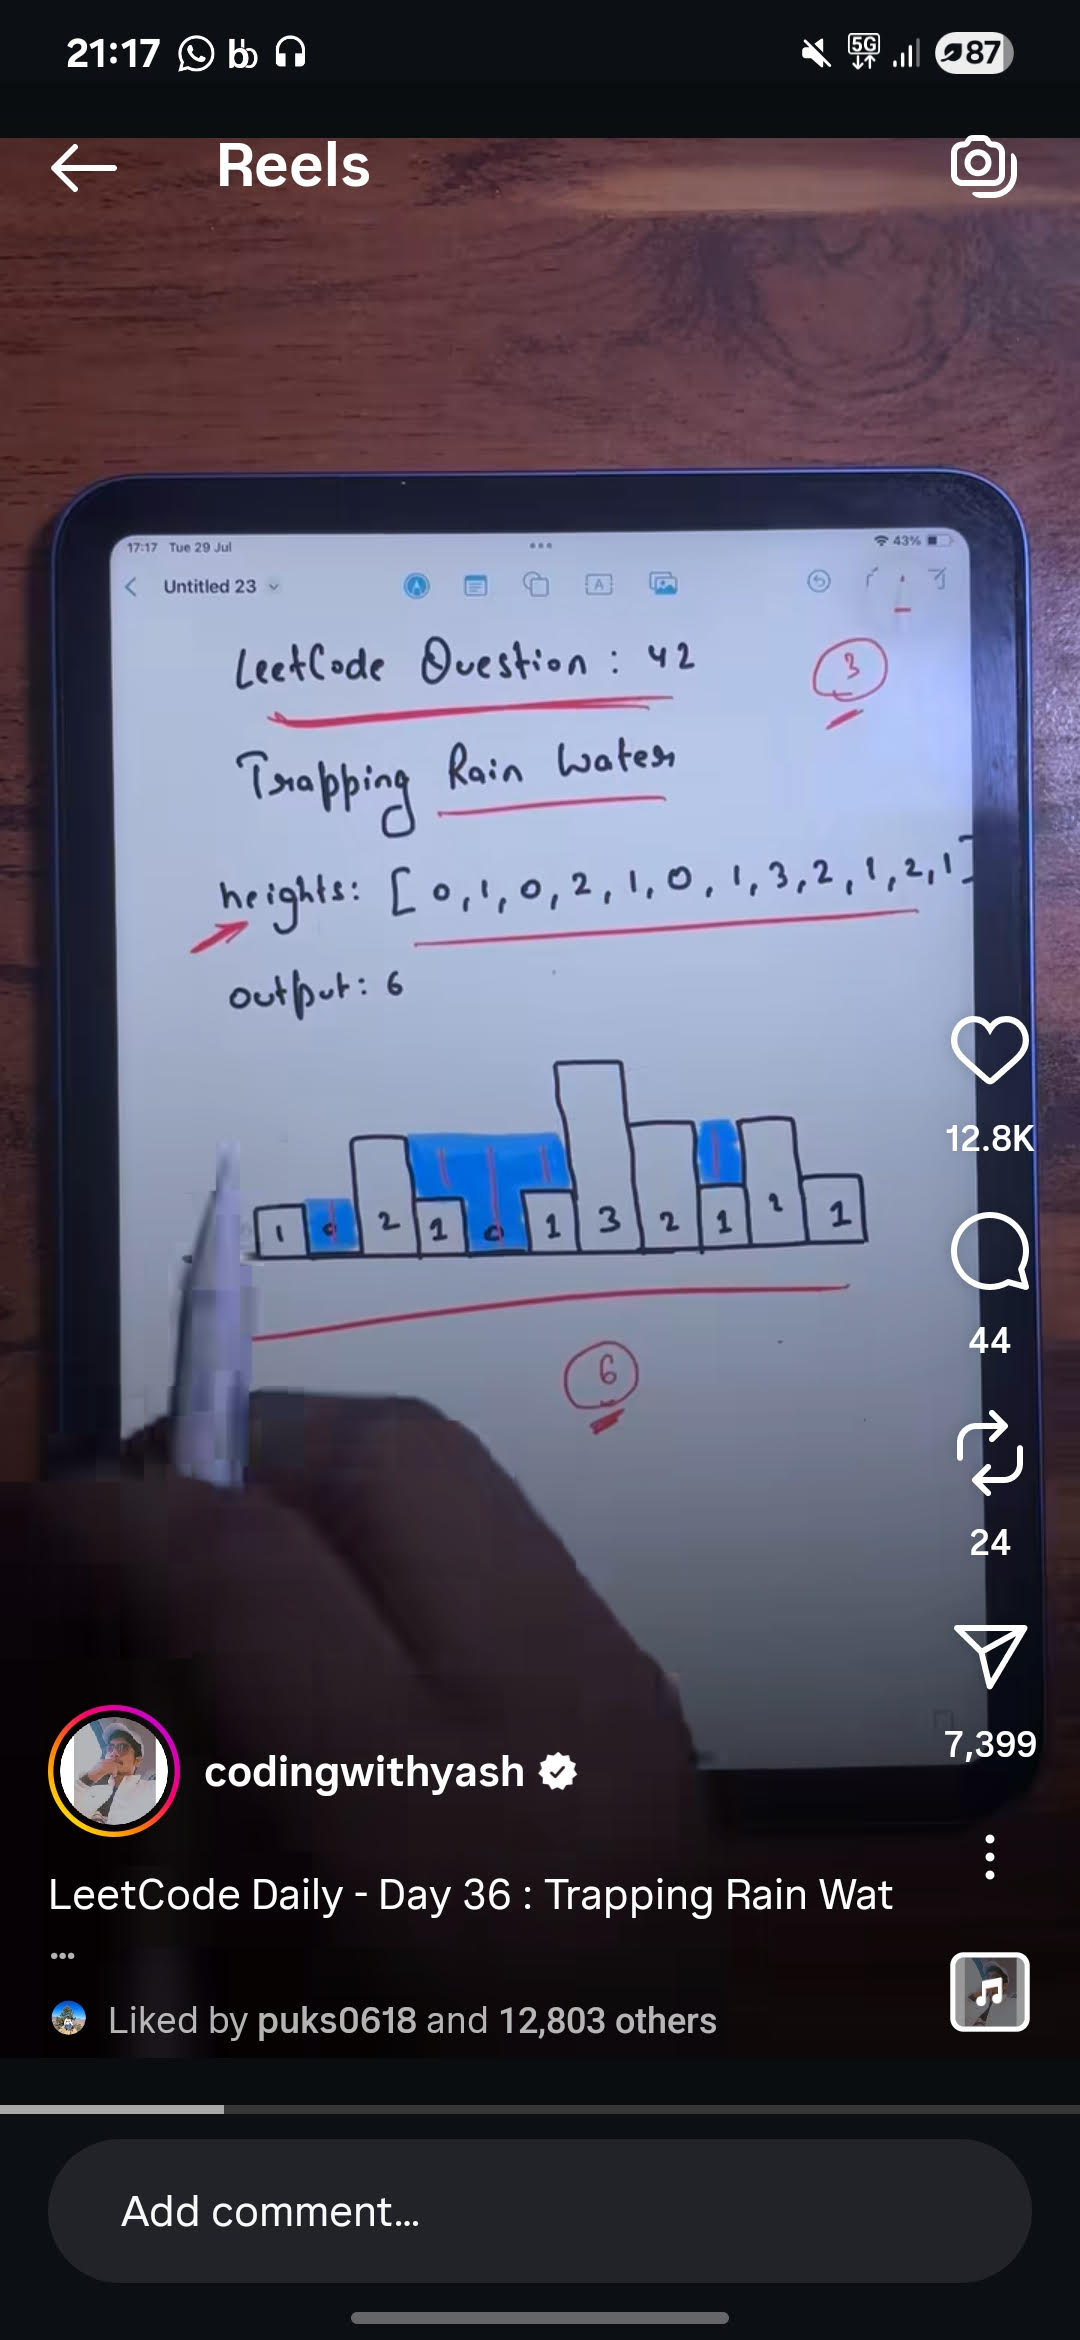 21:17
5G
87
Reels
17:17 Tue 29 Jul
43%
Untitled 23
A
LeetCode Question : 42
3
Trapping Rain Water
heights: [ 0, 1, 0, 2, 1, 0, 1, 3, 2, 1, 2, 1 ]
output: 6
1 0 2 1 0 1 3 2 1 2 1
6
12.8K
44
24
7,399
codingwithyash
LeetCode Daily - Day 36 : Trapping Rain Wat
...
Liked by puks0618 and 12,803 others
Add comment...